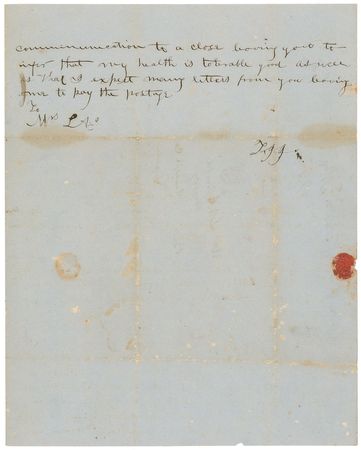 communication to a close leaving you to
infer that my health is tolerable good as well
as that I expect many letters from you leaving
me to pay the postage
To
Mrs L